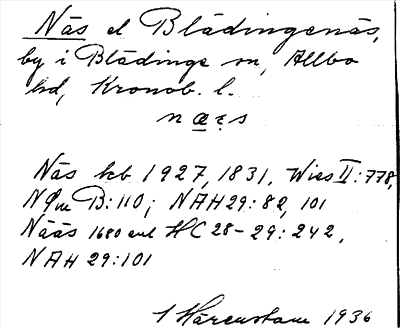 Näs el Blädingenäs,
by i Blädinge sn, Allbo
hd, Kronob. l.
næ̲ꞓs
Näs kb 1927, 1831, Wies II:778,
NOm B:110; NAH 29:82, 101
Nääs 1680 enl HC 28-29:242,
NAH 29:101
I Hårenstam 1936